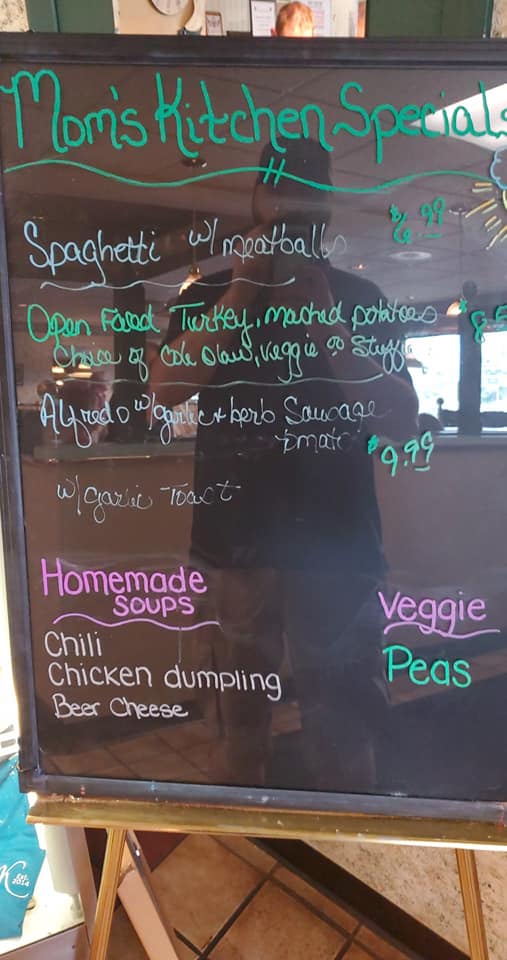 Mom's Kitchen Specials
Spaghetti w/ meatballs $6.99
Open Faced Turkey, mashed potatoes $8
Choice of Cole Slaw, Veggie or Stuff
Alfredo w/ garlic & herb Sausage
$9.99
w/ garlic Toast
Homemade
SOUPS
Chili
Chicken dumpling
Beer Cheese
Veggie
Peas
K
2014